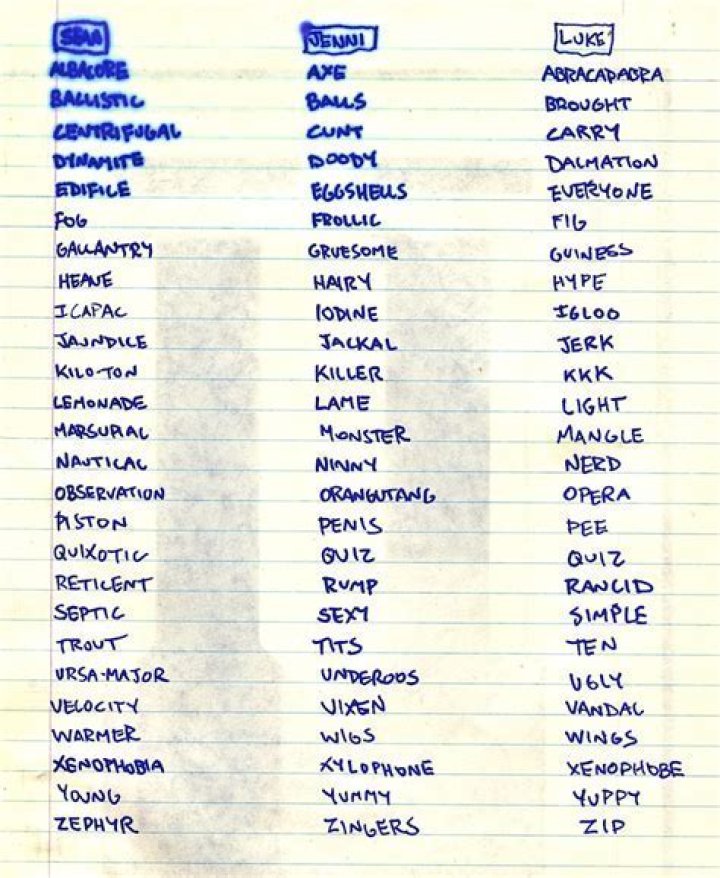 SEAN JENNI LUKE
ALBACORE AXE ABRACADABRA
BALLISTIC BALLS BROUGHT
CENTRIFUGAL CUNT CARRY
DYNAMITE DOODY DALMATION
EDIFICE EGGSHELLS EVERYONE
FOG FROLLIC FIG
GALLANTRY GRUESOME GUINESS
HEAVE HAIRY HYPE
ICAPAC IODINE IGLOO
JAUNDICE JACKAL JERK
KILO-TON KILLER KKK
LEMONADE LAME LIGHT
MARSUPIAL MONSTER MANGLE
NAUTICAL NINNY NERD
OBSERVATION ORANGUTANG OPERA
PISTON PENIS PEE
QUIXOTIC QUIZ QUIZ
RETICENT RUMP RANCID
SEPTIC SEXY SIMPLE
TROUT TITS TEN
URSA-MAJOR UNDEROOS UGLY
VELOCITY VIXEN VANDAL
WARMER WIGS WINGS
XENOPHOBIA XYLOPHONE XENOPHOBE
YOUNG YUMMY YUPPY
ZEPHYR ZINGERS ZIP